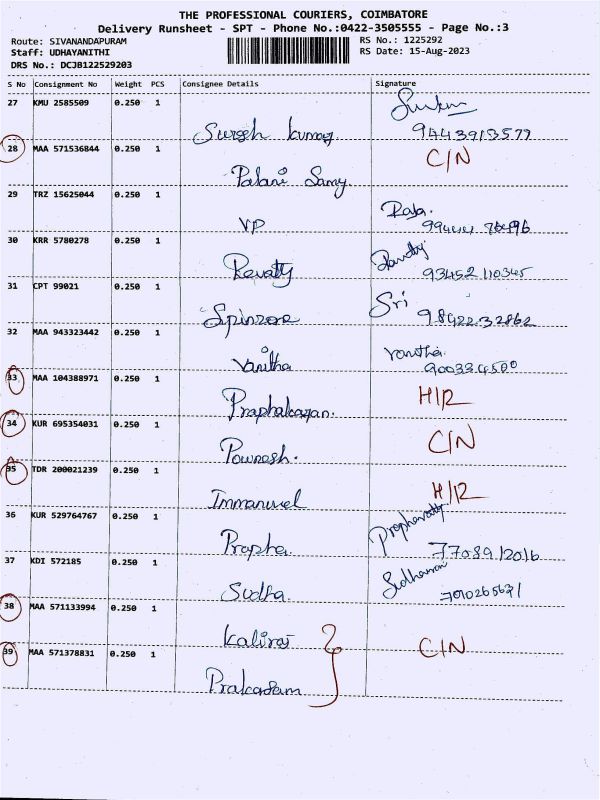 THE PROFESSIONAL COURIERS, COIMBATORE
Delivery Runsheet - SPT - Phone No.:0422-3505555 - Page No.:3
Route: SIVANANDAPURAM RS No.: 1225292
Staff: UDHAYANITHI RS Date: 15-Aug-2023
DRS No.: DCJB122529203
S No Consignment No Weight PCS Consignee Details Signature
27 KMU 2585509 0.250 1
Suresh kumar 9443913577
28 MAA 571536844 0.250 1 C/N
Palani Samy
29 TRZ 15625044 0.250 1 Raja.
VP 99444 76496
30 KRR 5780278 0.250 1
Revathy 93452 110345
31 CPT 99021 0.250 1 Sri
Spinzone 98422 32862
32 MAA 943323442 0.250 1 vanitha.
Vanitha
33 MAA 104388971 0.250 1 H/R
Praphakaran.
34 KUR 695354031 0.250 1 C/N
Pownesh.
35 TDR 200021239 0.250 1 H/R
Immanuel
36 KUR 529764767 0.250 1 Praphavathy
Prapha 77089 12016
37 KDI 572185 0.250 1
Sudha
38 MAA 571133994 0.250 1
Kaliraj
39 MAA 571378831 0.250 1 C/N
Prakasam